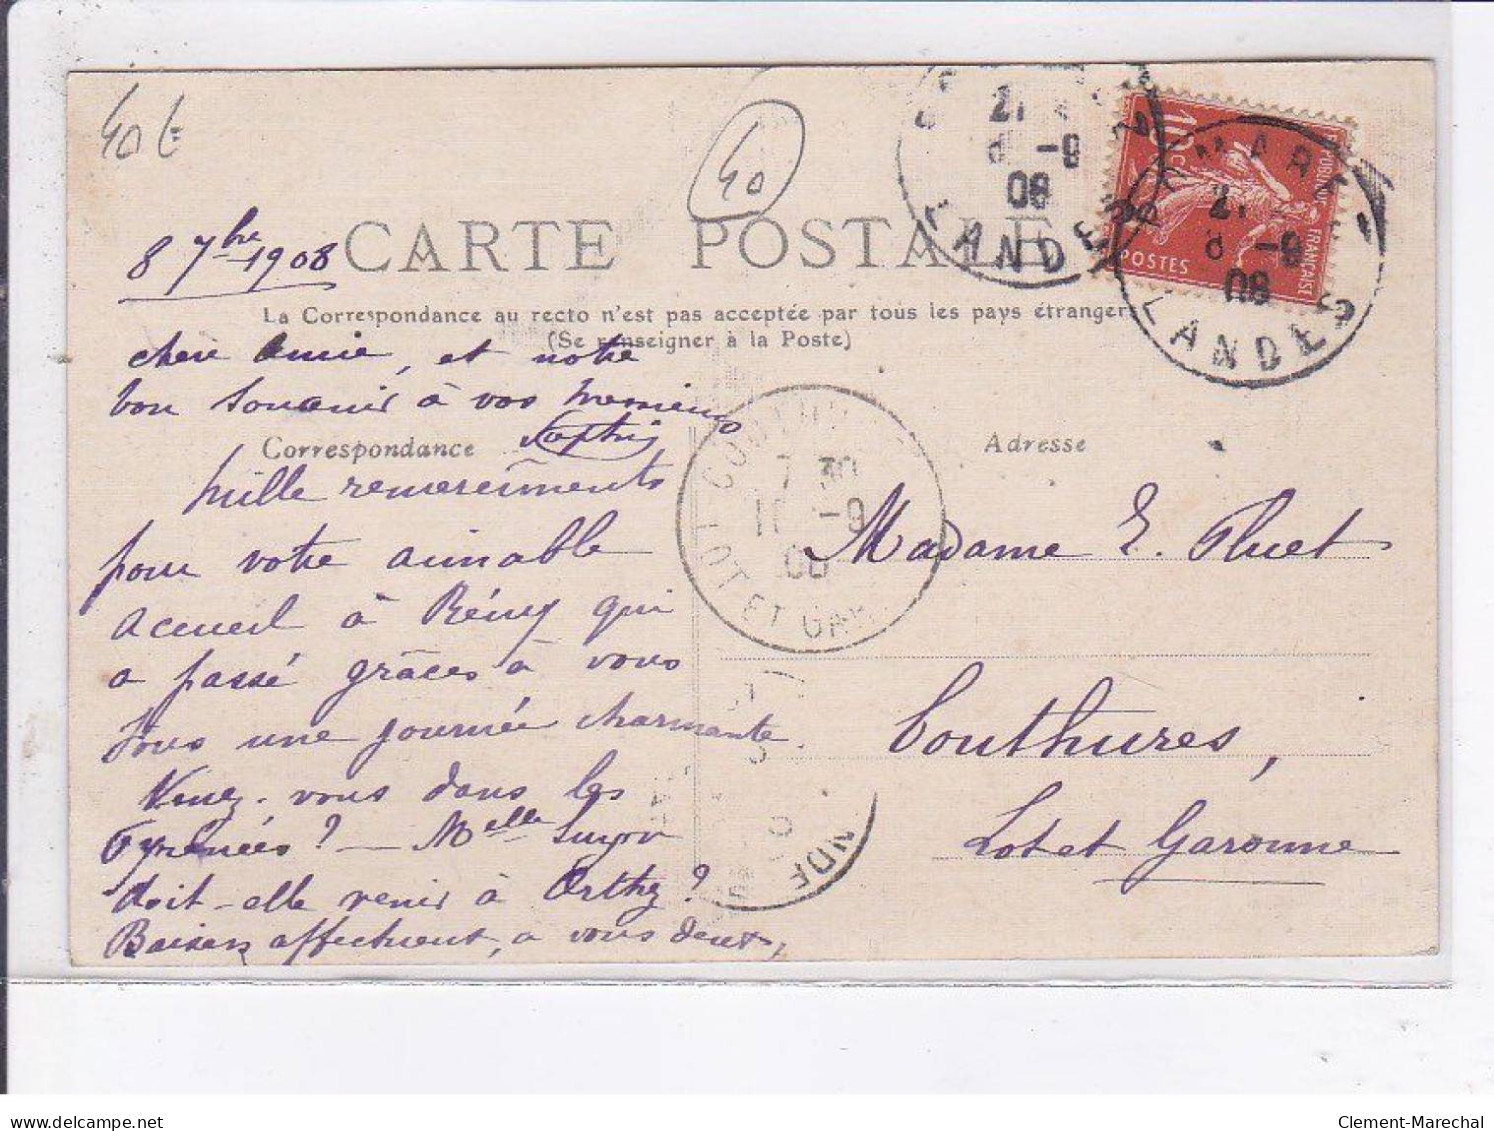 40 E
40
8 7bre 1908
CARTE POSTALE
La Correspondance au recto n'est pas acceptée par tous les pays étrangers
(Se renseigner à la Poste)
chere Amie, et notre
bon Souvenir à vos messieurs
Correspondance
Adresse
Mille remerciments
pour votre aimable
accueil à Rémy qui
a passé grâces à vous
tous une journée charmante.
Venez-vous dans les
Pyrénées? — Melle Suzon
doit-elle venir à Orthez?
Baisers affectueux, a vous deux,
Madame E. Pluet
Couthures,
Lot et Garonne
10c
REPUBLIQUE FRANÇAISE
POSTES
POMAREZ
21
8 -9
08
LANDES
21
8 -9
08
LANDES
COUTHURES
7 30
10 -9
08
LOT ET GAR.
ANDE
Clement-Marechal
delcampe.net